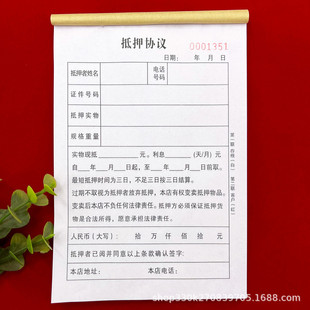 抵押协议
0001351
日期： 年 月 日
抵押者姓名 电话号码
证件号码
抵押实物
规格重量
实物现抵 元。利息 (天/月) 元
自 年 月 日起，至 年 月 日前取。
最短抵押时间为三日，不足三日按三日结算。
过期不取视为抵押者放弃抵押，本店有权变卖抵押物品，
变卖后本店不负任何法律责任。抵押方必须保证抵押货
物是合法所得，愿意承担法律责任。
人民币（大写）： 拾 万 仟 佰 拾 元
抵押者已阅并同意以上条款确认签字：
本店地址： 本店电话：
shop330k270839705.1688.com